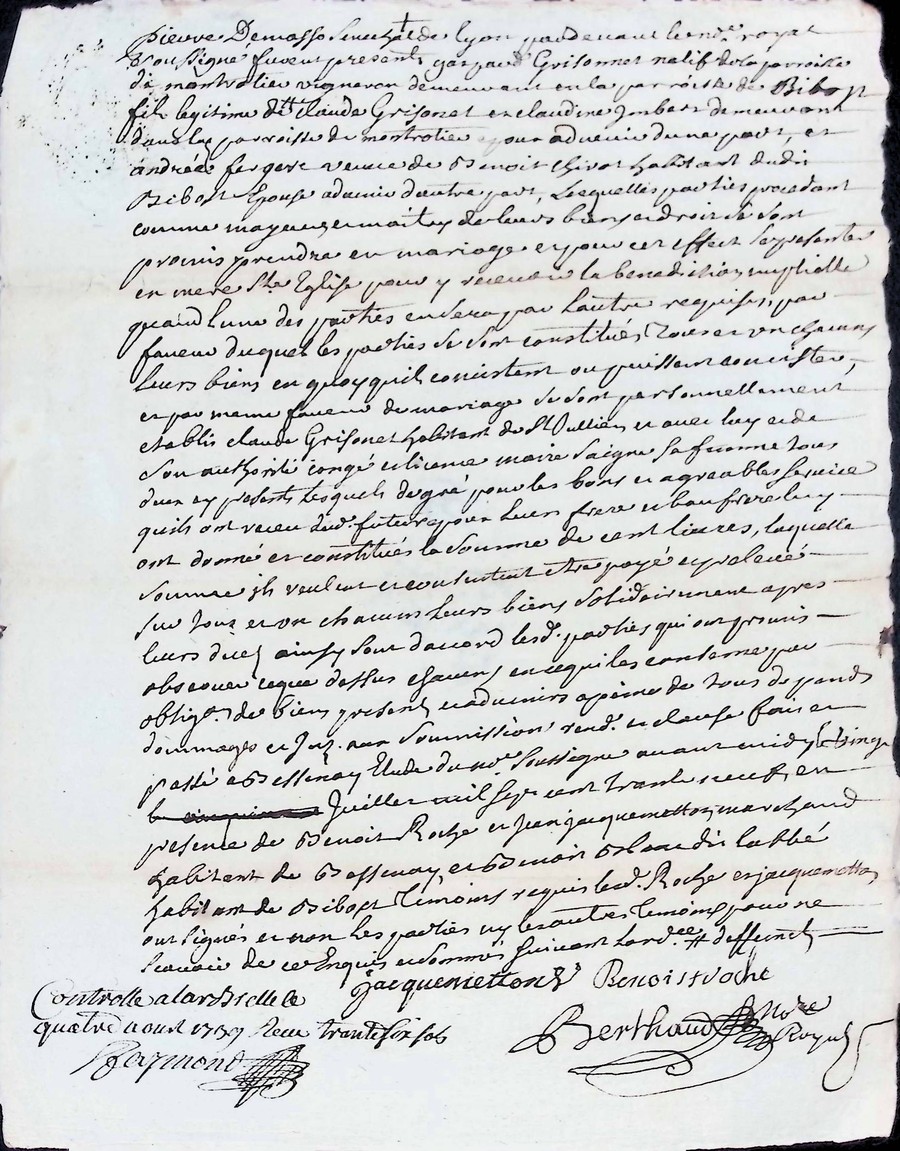 pierre Demasso Senechal de Lyon pardevant le nore. royal
soussigné furent presents gaspard Grisonnet natif de la parroisse
de montrotier vigneron demeurant en la parroisse de Bibost
fils legitime de Claude Grisonet et claudine Imbert demeurant
dans la parroisse de montrotier epoux advenir d'une part, et
andrée fergere veuve de Benoit Chirat habitant dudit
Bibost Epouse advenir d'autre part, Lesquelles parties procedant
comme mayeurs et maitres de leurs biens et droits se sont
promis prendre en mariage et pour cet effect se presenter
en mere Ste Eglise pour y recevoir la benediction nuptialle
quand l'une des parties en sera par l'autre requise, par
faveur duquel les parties se sont constitués tous et un chacuns
leurs biens en quoy quil consistent ou puissent concister,
et par meme faveur de mariage se sont personnellement
etablis claude Grisonet habitant de St Jullien et avec luy et de
Son authorité congé et licence marie Saigne Sa femme tous
deux cy presents lesquels de gré pour les bons et agreables service
quils ont receu dud. futur epoux Leurs frere et beaufrere luy
ont donné et constitués la Somme de cent livres, laquelle
Somme ils veulent et consentent etre payé et prelevé
sur tous et un chacuns leurs biens solidairement apres
leurs deces ainsy sont d'accord lesd. parties qui ont promis
observer ce que dessus chacuns en ce qui les conserne par
obligon. de biens presents et advenirs a peine de tous depends
dommages et Int. aux Soumissions rend. et clause fait et
passé a Bessenay Etude du nore. Soussigné avant midy le vingt
Juillet mil sept cent trente sept, en
presence de Benoit Roche et Jean jacquemetton marchand
habitant de Bessenay, et Benoit Blanc dit Labbé
habitant de Bibost Temoins requis lesd. Roche et jacquemetton
ont signés et non les parties ny les autres temoins pour ne
scavoir de ce Enquis et Sommés suivant lordce. #
jacquemetton Benoist roche
Controlle a larbrelle le
quatre aoust 1737 Receu trante six sols
Berthaud Nore Royal
Raymond